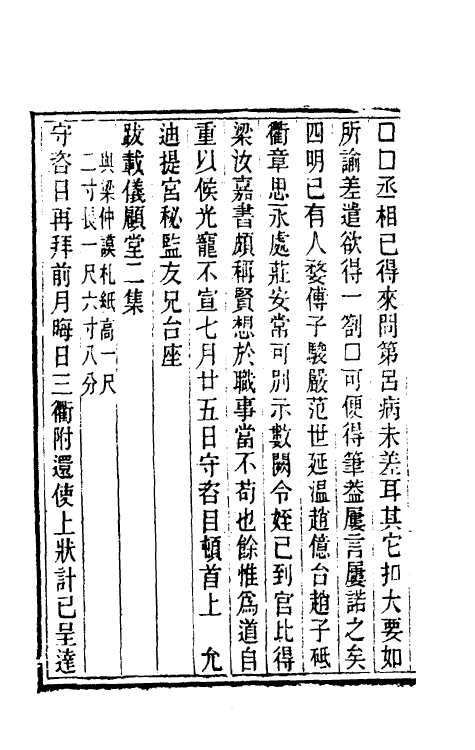 □□丞相已得來問第呂病未差耳其它扣大要如
所諭差遣欲得一劄□可便得筆葢屢言屢諾之矣
四明已有人婺傅子駿嚴范世延温趙億台趙子砥
衢章思永處莊安常可別示數闕令姪已到官比得
梁汝嘉書頗稱賢想於職事當不苟也餘惟爲道自
重以俟光寵不宣七月廿五日守咨目頓首上　允
迪提宮秘監友兄台座
跋載儀顧堂二集
與梁仲謨札紙高一尺
二寸長一尺六寸八分
守咨目再拜前月晦日三衢附還使上狀計已呈達